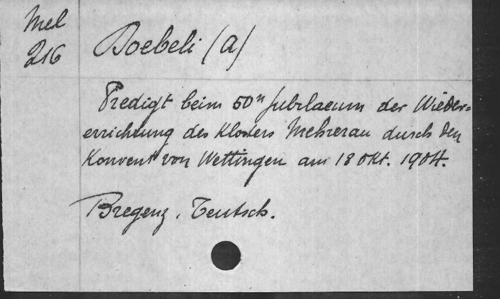 Mel
216
Doebeli (a)
Predigt beim 50n Jubilaeum der Wieder=
errichtung des Klosters Mehrerau durch den
Konvent von Wettingen am 18 Okt. 1904.
Bregenz, Teutsch.